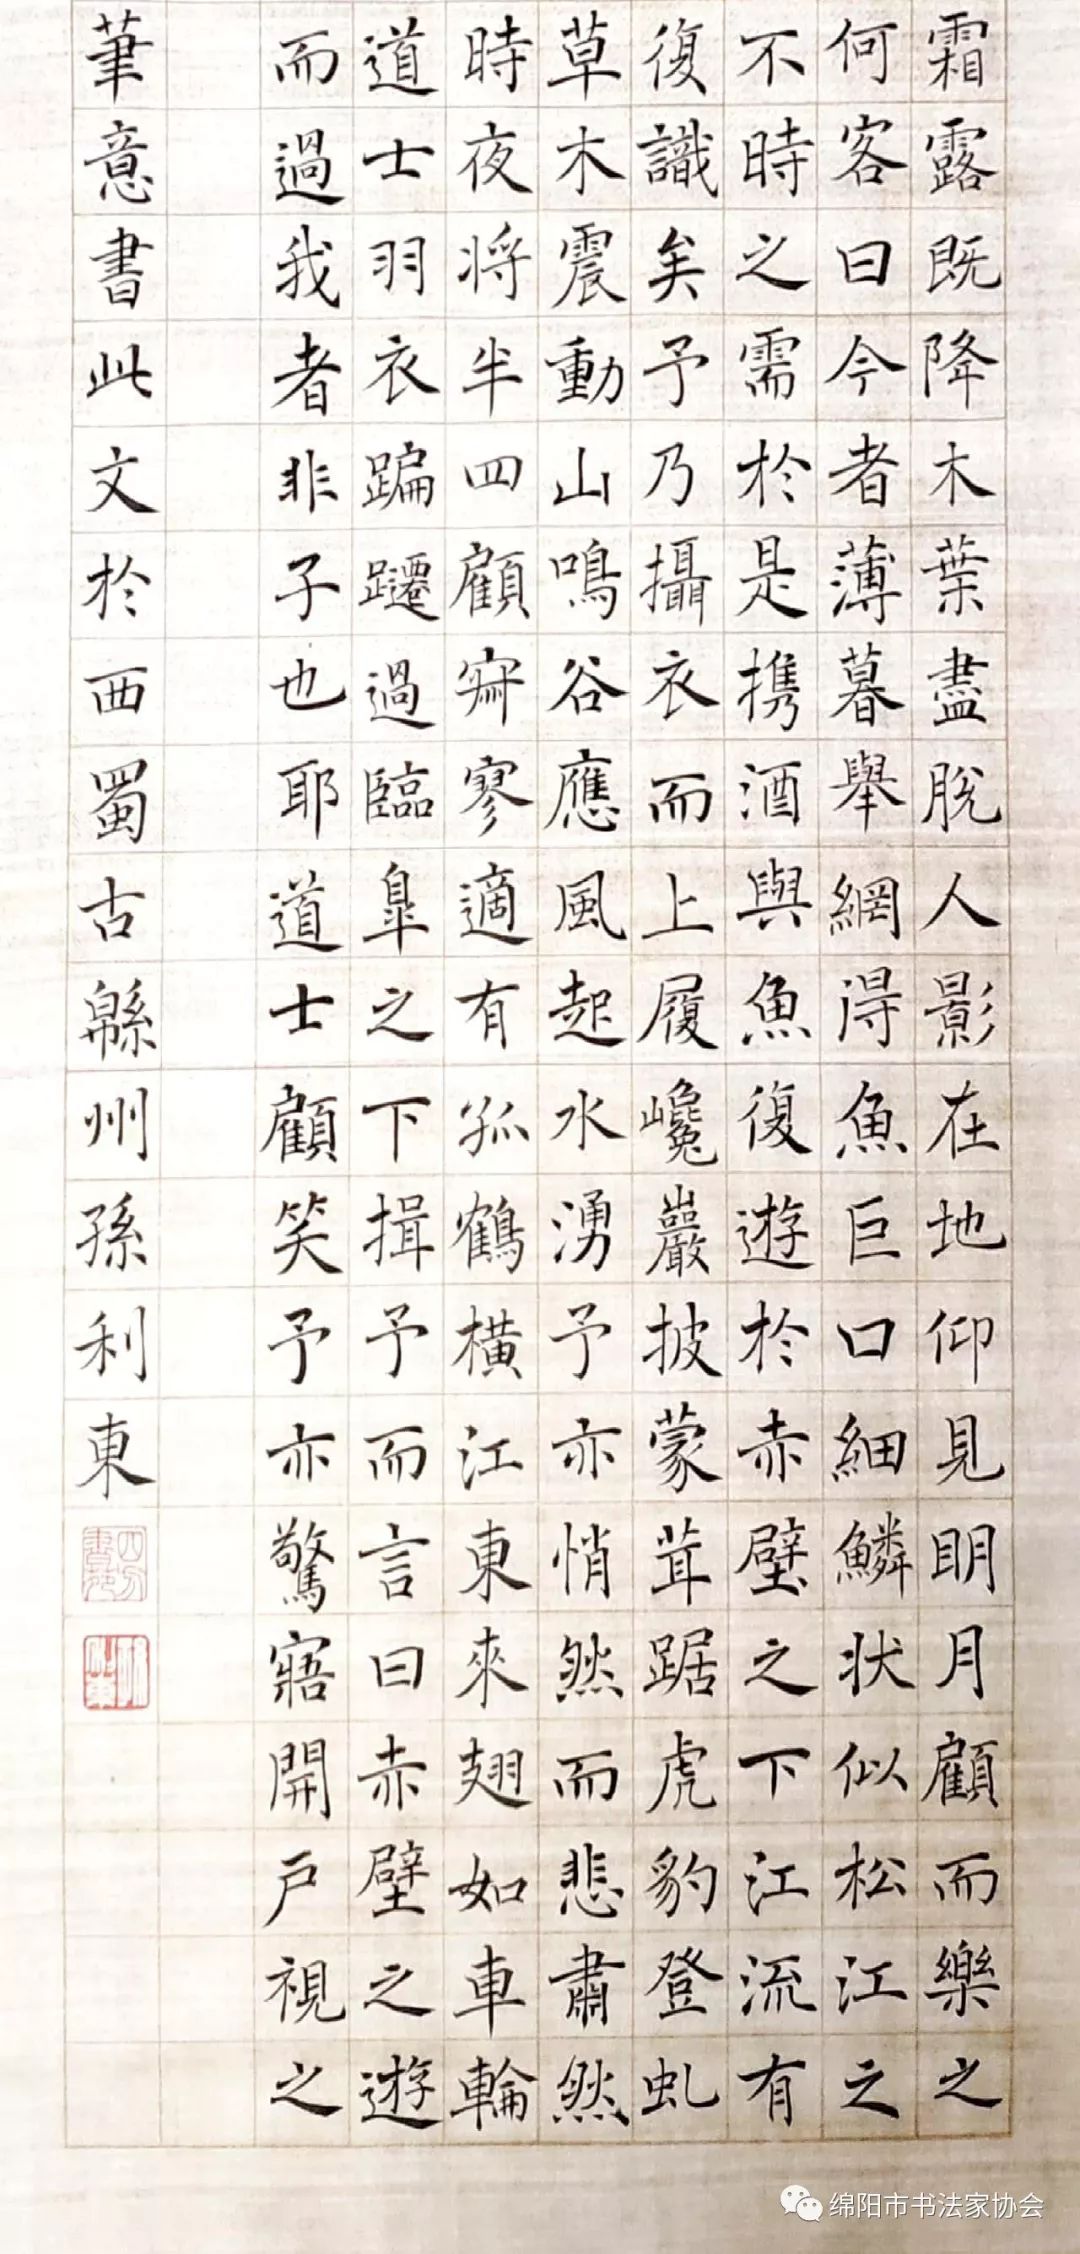 霜露既降木葉盡脫人影在地仰見明月顧而樂之
何客曰今者薄暮舉網得魚巨口細鱗狀似松江之
不時之需於是攜酒與魚復遊於赤壁之下江流有
復識矣予乃攝衣而上履巉巖披蒙茸踞虎豹登虬
草木震動山鳴谷應風起水湧予亦悄然而悲肅然
時夜將半四顧寂寥適有孤鶴橫江東來翅如車輪
道士羽衣蹁躚過臨皐之下揖予而言曰赤壁之遊
而過我者非子也耶道士顧笑予亦驚寤開戶視之
筆意書此文於西蜀古緜州孫利東
绵阳市书法家协会